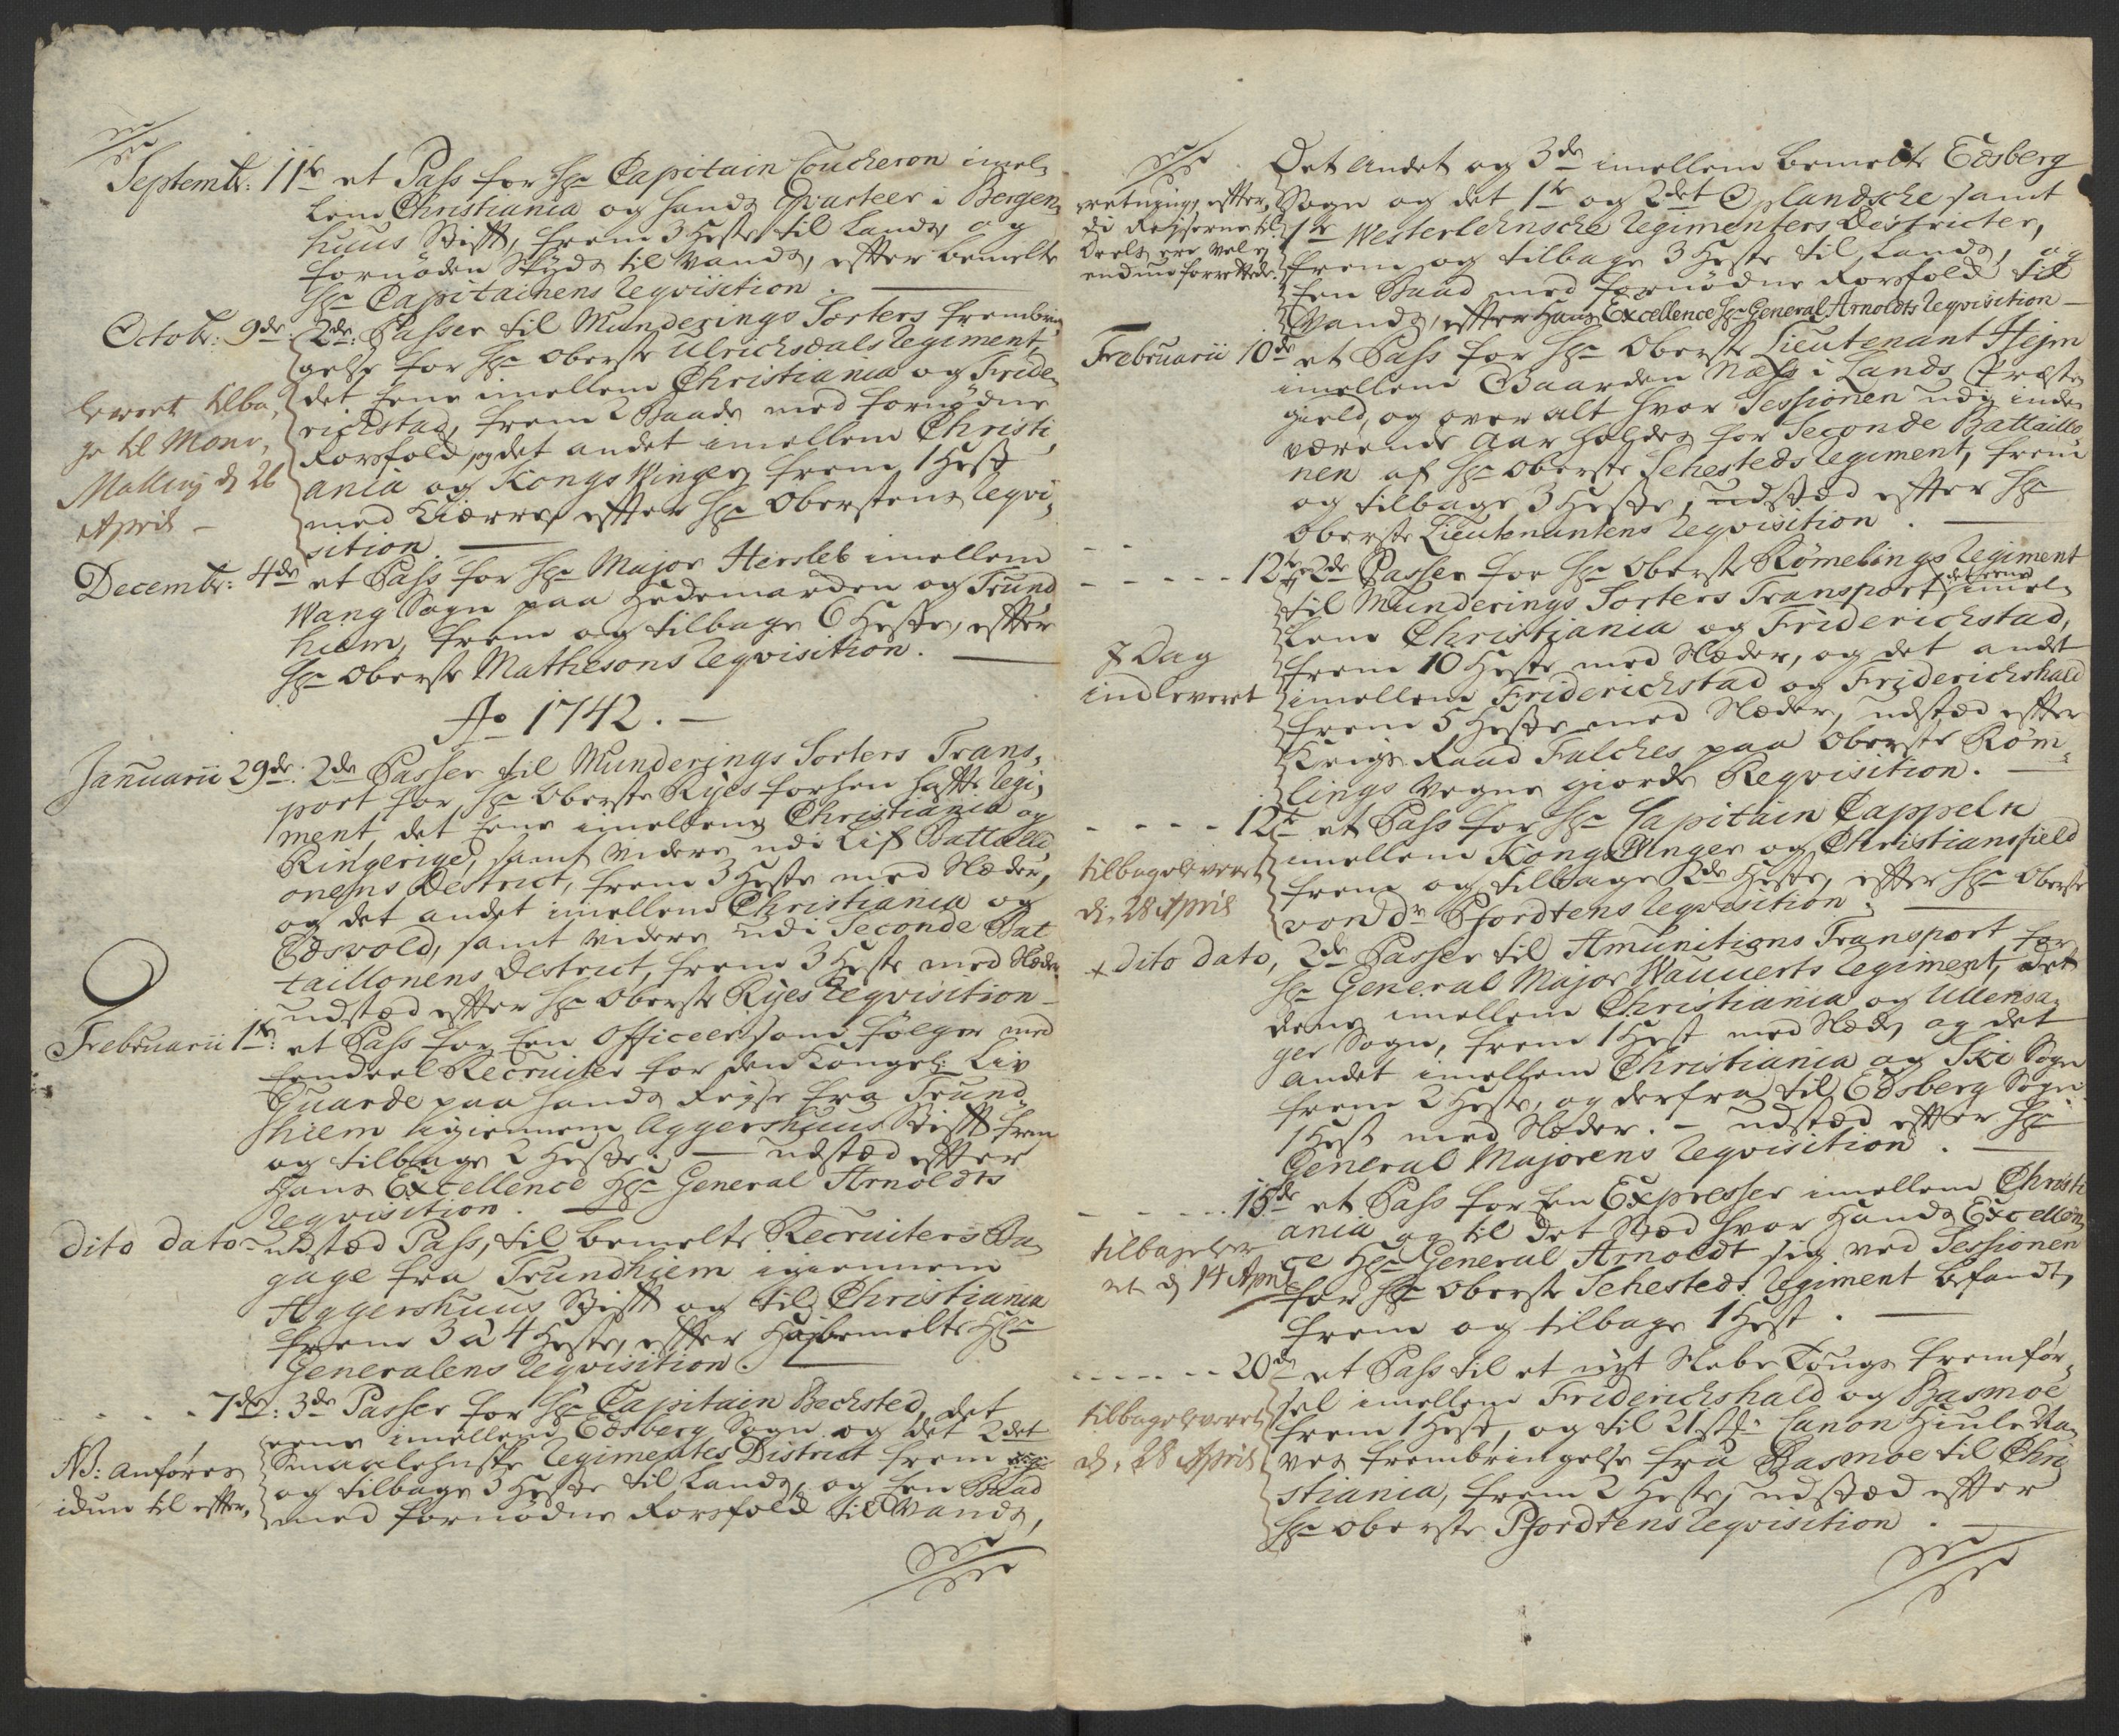 Septembr: 11te et Pass for Hr Capitain Coucheron imel-
lem Christiania og hands Qvarteer i Bergen-
huus Stifft, frem 3 Heste til Lands og
fornøden Skyds til Vands, efter bemelte
Hr Capitainens Reqvisition.
Octobr: 9de: 2de: Passer til Munderings Sorters frembrin
gelse for Hr Oberste Ulrichsdals Regiment,
det Eene imellem Christiania og Fride-
richstad, frem 2 Baade med fornødne
Rorsfolk, og det andet imellem Christi-
ania og Kongs Winger, frem 1 Hest
med Kiærre, efter Hr Oberstens Reqvi-
sition.
leveret tilba-
ge til Monr.
Malling d 26
April -
Decembr: 4de et Pass for Hr Major Hersleb imellem
Wang Sogn paa Hedemarken og Trund
hiem, frem og tilbage 6 Heste, efter
Hr Oberste Mathesons Reqvisition.
Ao 1742. -
Januarii 29de: 2de Passer til Munderings Sorters Trans-
port for Hr Oberste Ryes forhen hafte Regi-
ment, det Eene imellem Christiania og
Ringerige, samt videre udi Lif Battailli
onens District, frem 3 Heste med Slæder,
og det andet imellem Christiania og
Edsvold, samt videre udi Seconde Bat
taillonens District, frem 3 Heste med Slæder
udstæd efter Hr Oberste Ryes Reqvisition -
Februarii 1te: et Pass for Een Officeer som følger med
Eendeel Recruiter for den Kongel: Liv
Guarde paa hands Reyse fra Trund-
hiem igiennem Aggershuus Stifft frem
og tilbage 2 Heste. - udstæd efter
Hans Excellence Hr General Arnoldts
Reqvisition.
Dito dato udstæd Pass, til bemelte Recruiters Ba-
gage fra Trundhiem igiennem
Aggershuus Stifft og til Christiania
frem 3 à 4 Heste, efter Høybemelte Hr
Generalens Reqvisition.
7de: 3de Passer for Hr Capitain Bechsted, det
eene imellem Edsberg Sogn og det 2det
Smaalehnske Regimentes District frem
og tilbage 3 Heste til Lands, og Een Baad
med fornødne Rorsfolk til Vands,
NB: anføres
idun til efter-
Det Andet og 3de imellem bemelte Edsberg
Sogn og det 1te og 2det Oplandsche samt
1te Westerlehnsche Regimenters Districter,
frem og tilbage 3 Heste til Lands, og
Een Baad med fornødne Rorsfolk til
Vands, efter Hans Excellence Hr General Arnoldts Reqvisition -
retnings efter,
di Reyserne til
Deels ere vel ey
endnu forrettede.
Februarii 10de et Pass for Hr Oberste Lieutenant Hejm
imellem Gaarden Næss i Lands Præste
gield, og over alt hvor Sessionen udj inde-
værende Aar holdes for Seconde Battaillo
nen af Hr Oberste Schesteds Regiment, frem
og tilbage 3 Heste, udstæd efter Hr
Oberste Lieutenantens Reqvisition.
12te 2de Passer for Hr Oberste Rømelings Regiment
til Munderings Sorters Transport, det eene imel-
lem Christiania og Friderichstad,
frem 10 Heste med Slæder, og det andet
imellem Friderichstad og Friderichshald
frem 5 Heste med Slæder, udstæd efter
Krigs Raad Falches paa Oberste Røm-
lings Vegne giorde Reqvisition.
J Dag
indleveret
12te et Pass for Hr Capitain Cappeln
imellem Kongs Winger og Christiansfield
frem og tilbage 2de Heste, efter Hr Oberste
von Dr Pfordtens Reqvisition.
tilbageleveret
d. 28 April
+ Dito dato, 2de Passer til Amunitions Transport for
Hr General Major Wauverts Regiment, det
Eene imellem Christiania og Ullensa-
ger Sogn, frem 1 Hest med Slæde, og det
andet imellem Christiania og Ski Sogn
frem 2 Heste, og derfra til Edsberg Sogn
1 Hest med Slæder. - udstæd efter Hr
General Majorens Reqvisition.
15de et Pass for Een Expresser imellem Christi
ania og til det Stæd hvor Hands Excellen-
ce Hr General Arnoldt sig ved Sessionen
for Hr Oberste Schesteds Regiment befandt,
frem og tilbage 1 Hest.
tilbagelever
et d 14 April
20de et Pass til et nyt Slebe Tougs fremfør-
sel imellem Friderichshald og Basmoe
frem 1 Hest, og til 21 st: Canon Hiule Na-
ves frembringelse fra Basmoe til Chri-
stiania, frem 2 Heste, udstæd efter
Hr Oberste Pfordtens Reqvisition.
tilbageleveret
d. 28 April